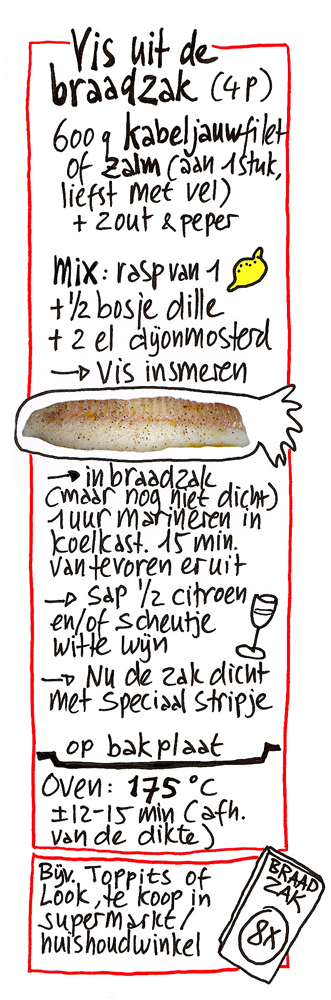 Vis uit de
braadzak (4p)
600 g kabeljauwfilet
of zalm (aan 1 stuk,
liefst met vel)
+ zout & peper
Mix: rasp van 1
+ 1/2 bosje dille
+ 2 el dijonmosterd
→ vis insmeren
→ in braadzak
(maar nog niet dicht)
1 uur marineren in
koelkast. 15 min.
van tevoren eruit
→ sap 1/2 citroen
en/of scheutje
witte wijn
→ Nu de zak dicht
met speciaal stripje
op bakplaat
Oven: 175 °C
±12-15 min (afh.
van de dikte)
Bijv. Toppits of
Look, te koop in
supermarkt/
huishoudwinkel
BRAAD
ZAK
8x